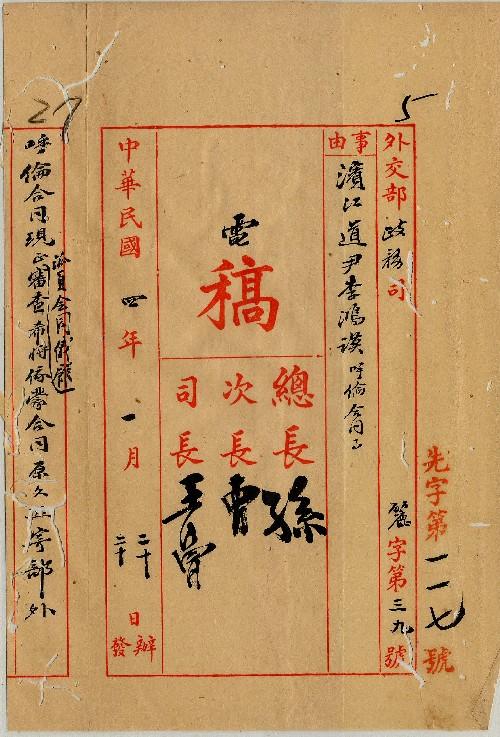 5
先字第一一七號
外交部 政務司
麗字第三九號
事由
濱江道尹李鴻謨呼倫合同事
電
稿
總長 孫
次長 曹
司長 王曾
中華民國 四年 一月 二十 二十 日 辦 發
27
呼倫合同現正審查希將俄蒙合同原文 寄部外